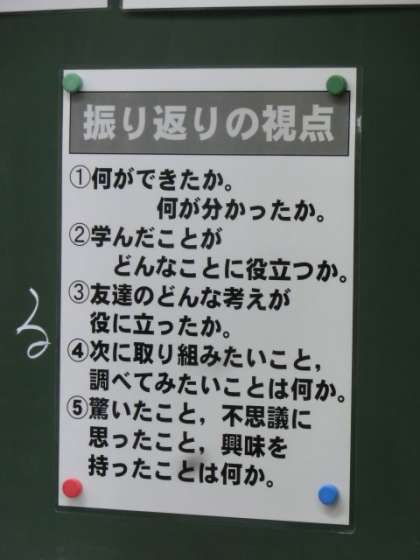 振り返りの視点
①何ができたか。
何が分かったか。
②学んだことが
どんなことに役立つか。
③友達のどんな考えが
役に立ったか。
④次に取り組みたいこと，
調べてみたいことは何か。
⑤驚いたこと，不思議に
思ったこと，興味を
持ったことは何か。
る